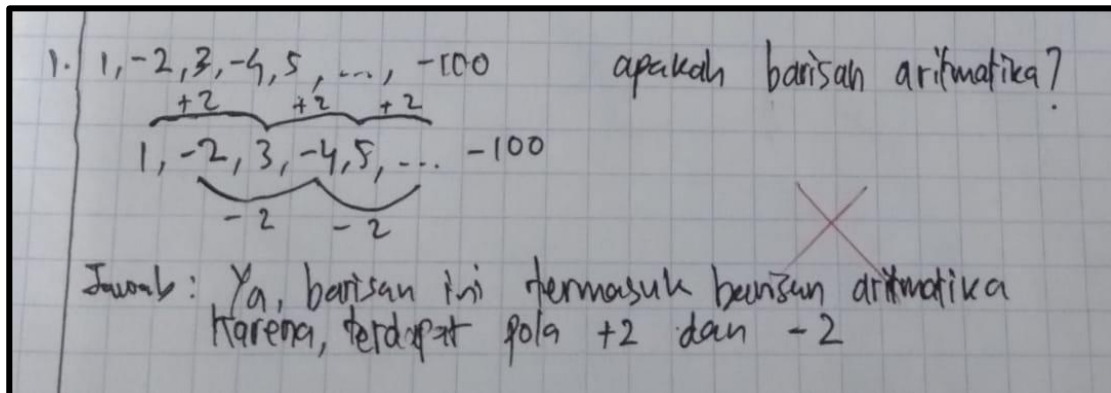 1. 1, -2, 3, -4, 5, ..., -100 apakah barisan aritmatika?
+2 +2 +2
1, -2, 3, -4, 5, ... -100
-2 -2
Jawab : Ya, barisan ini termasuk barisan aritmatika
Karena, terdapat pola +2 dan -2